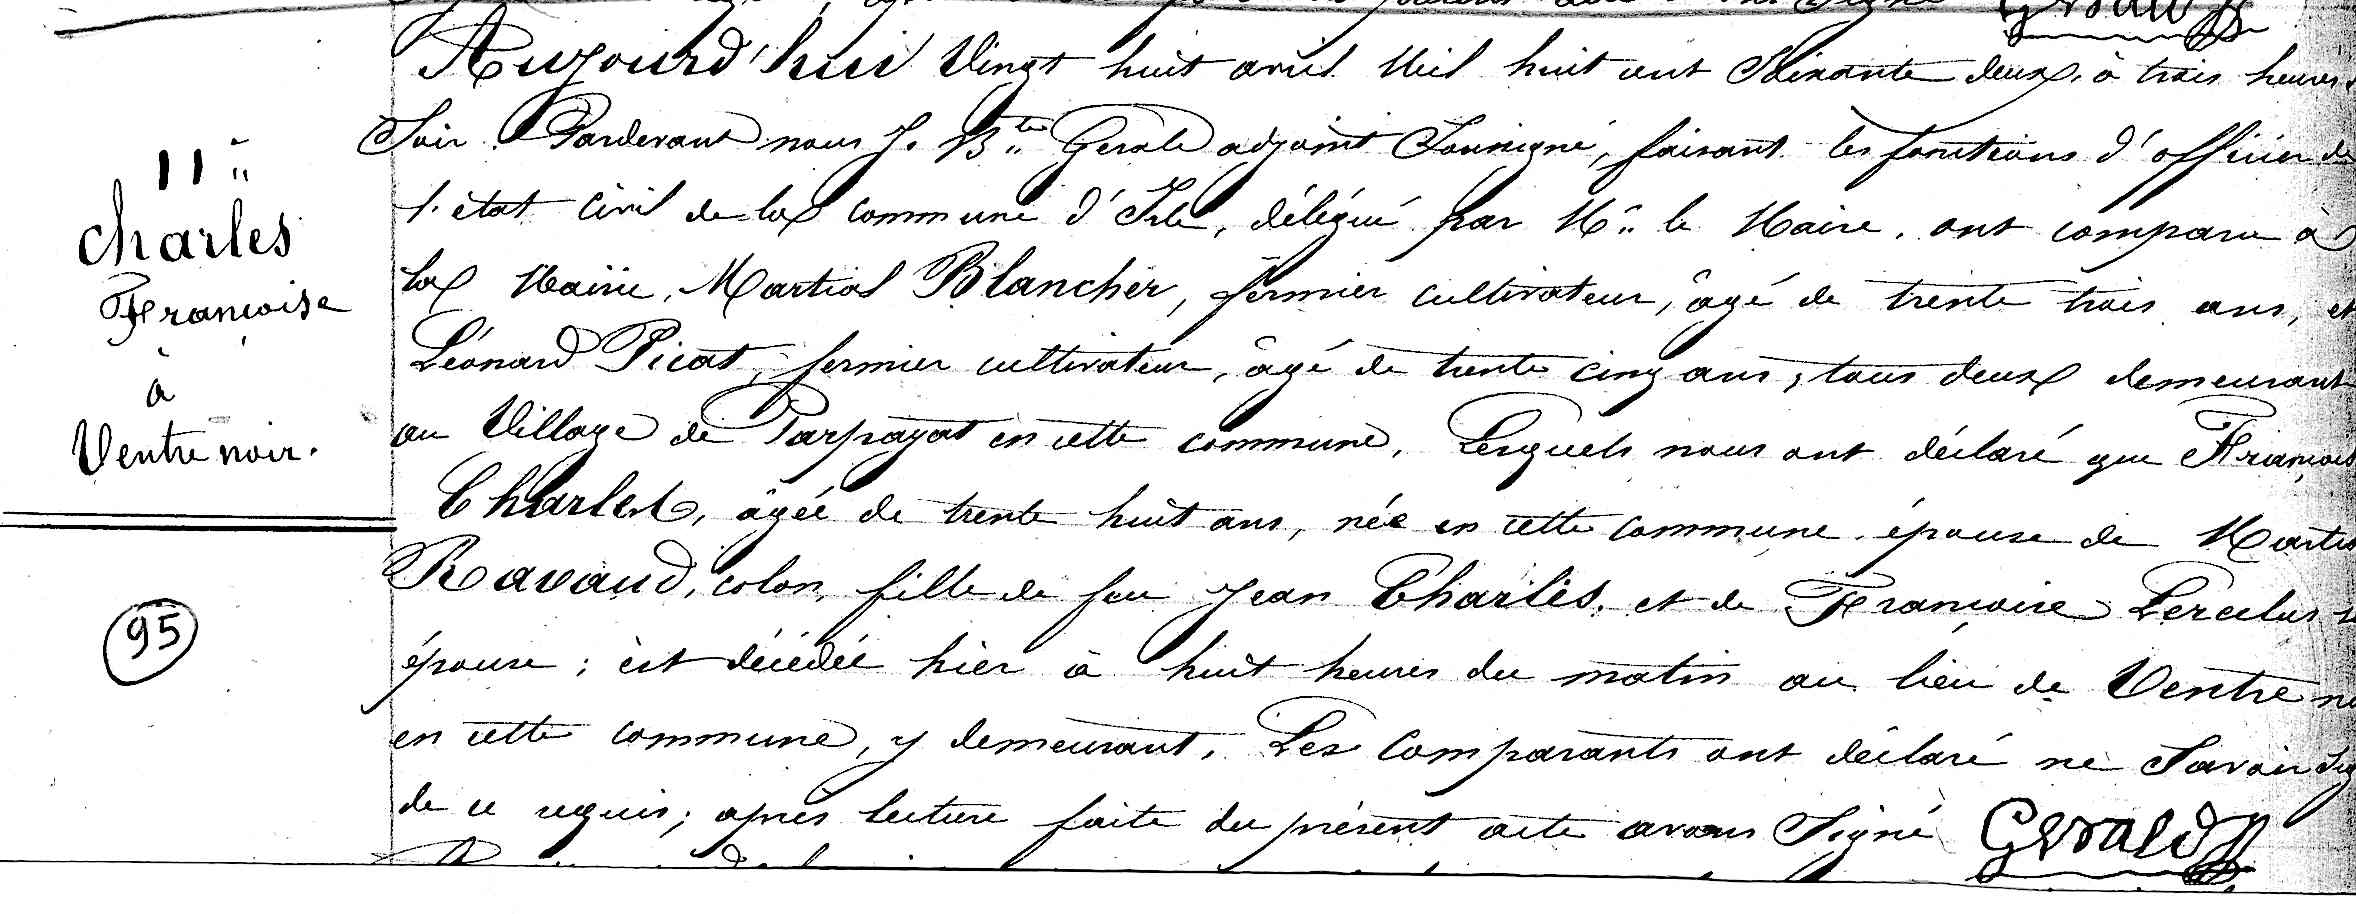 11e
Charles
Françoise
à
Ventre noir.
95
Aujourd'hui Vingt huit avril Mil huit cent Soixante deux, à trois heures
Soir Pardevant nous J. Bte Gérald adjoint Soussigné, faisant les fonctions d'officier de
l'état civil de la commune d'Isle, délégué par Mr le Maire, ont comparu à
la Mairie, Martial Blancher, fermier cultivateur, âgé de trente trois ans, et
Léonard Picat, fermier cultivateur, âgé de trente cinq ans, tous deux demeurant
au Village de Parpayat en cette commune, Lesquels nous ont déclaré que Françoise
Charles, âgée de trente huit ans, née en cette commune, épouse de Martial
Ravaud, colon, fille de feu Jean Charles, et de Françoise
épouse; est décédée hier à huit heures du matin au lieu de Ventre
en cette commune, y demeurant. Les Comparants ont déclaré ne Savoir
de ce requis; après lecture faite du présent acte avons Signé Gérald